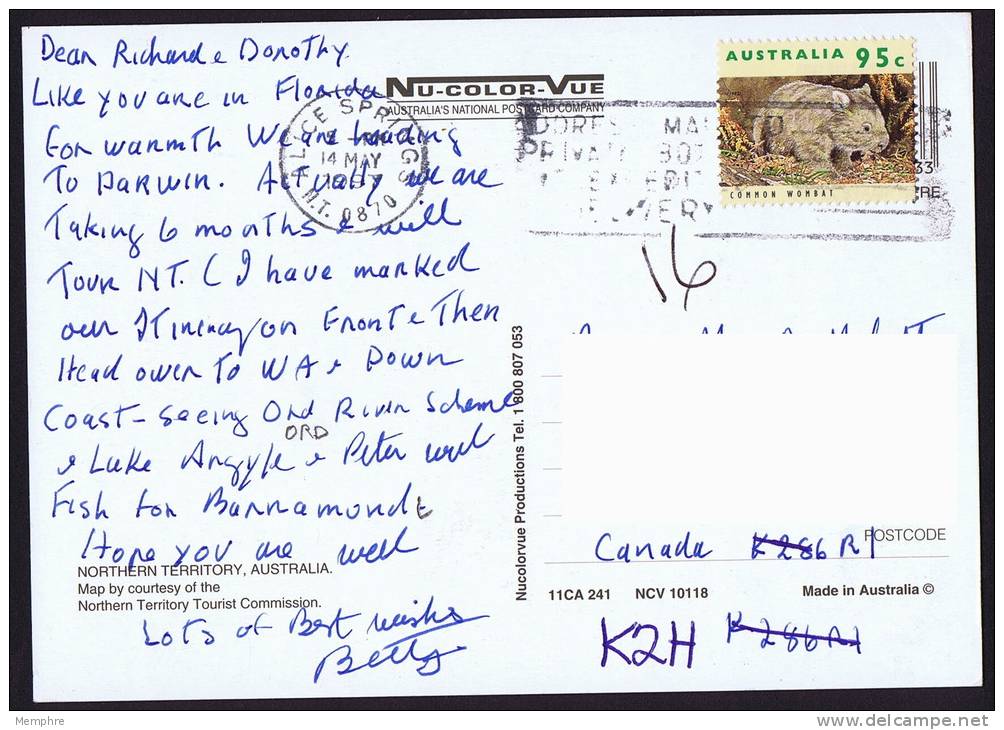 Dear Richard & Dorothy.
Like you are in Florida
For warmth We are heading
To DARWIN. Actually we are
Taking 6 months & will
Tour N.T. (I have marked
our Itinery on Front & Then
Head over To WA & Down
Coast - Seeing Ord River Scheme
ORD
& Lake Argyle & Peter will
Fish for Barramundi
Hope you are well
Lots of Best wishes
Betty
NU-COLOR-VUE
AUSTRALIA'S NATIONAL POSTCARD COMPANY
ALICE SPRINGS
14 MAY
N.T. 0870
AUSTRALIA 95c
COMMON WOMBAT
33
RE
16
Nucolorvue Productions Tel. 1 800 807 053
POSTCODE
Canada K286R1
K2H K286R1
NORTHERN TERRITORY, AUSTRALIA.
Map by courtesy of the
Northern Territory Tourist Commission.
11CA 241 NCV 10118 Made in Australia ©
Memphre
www.delcampe.net